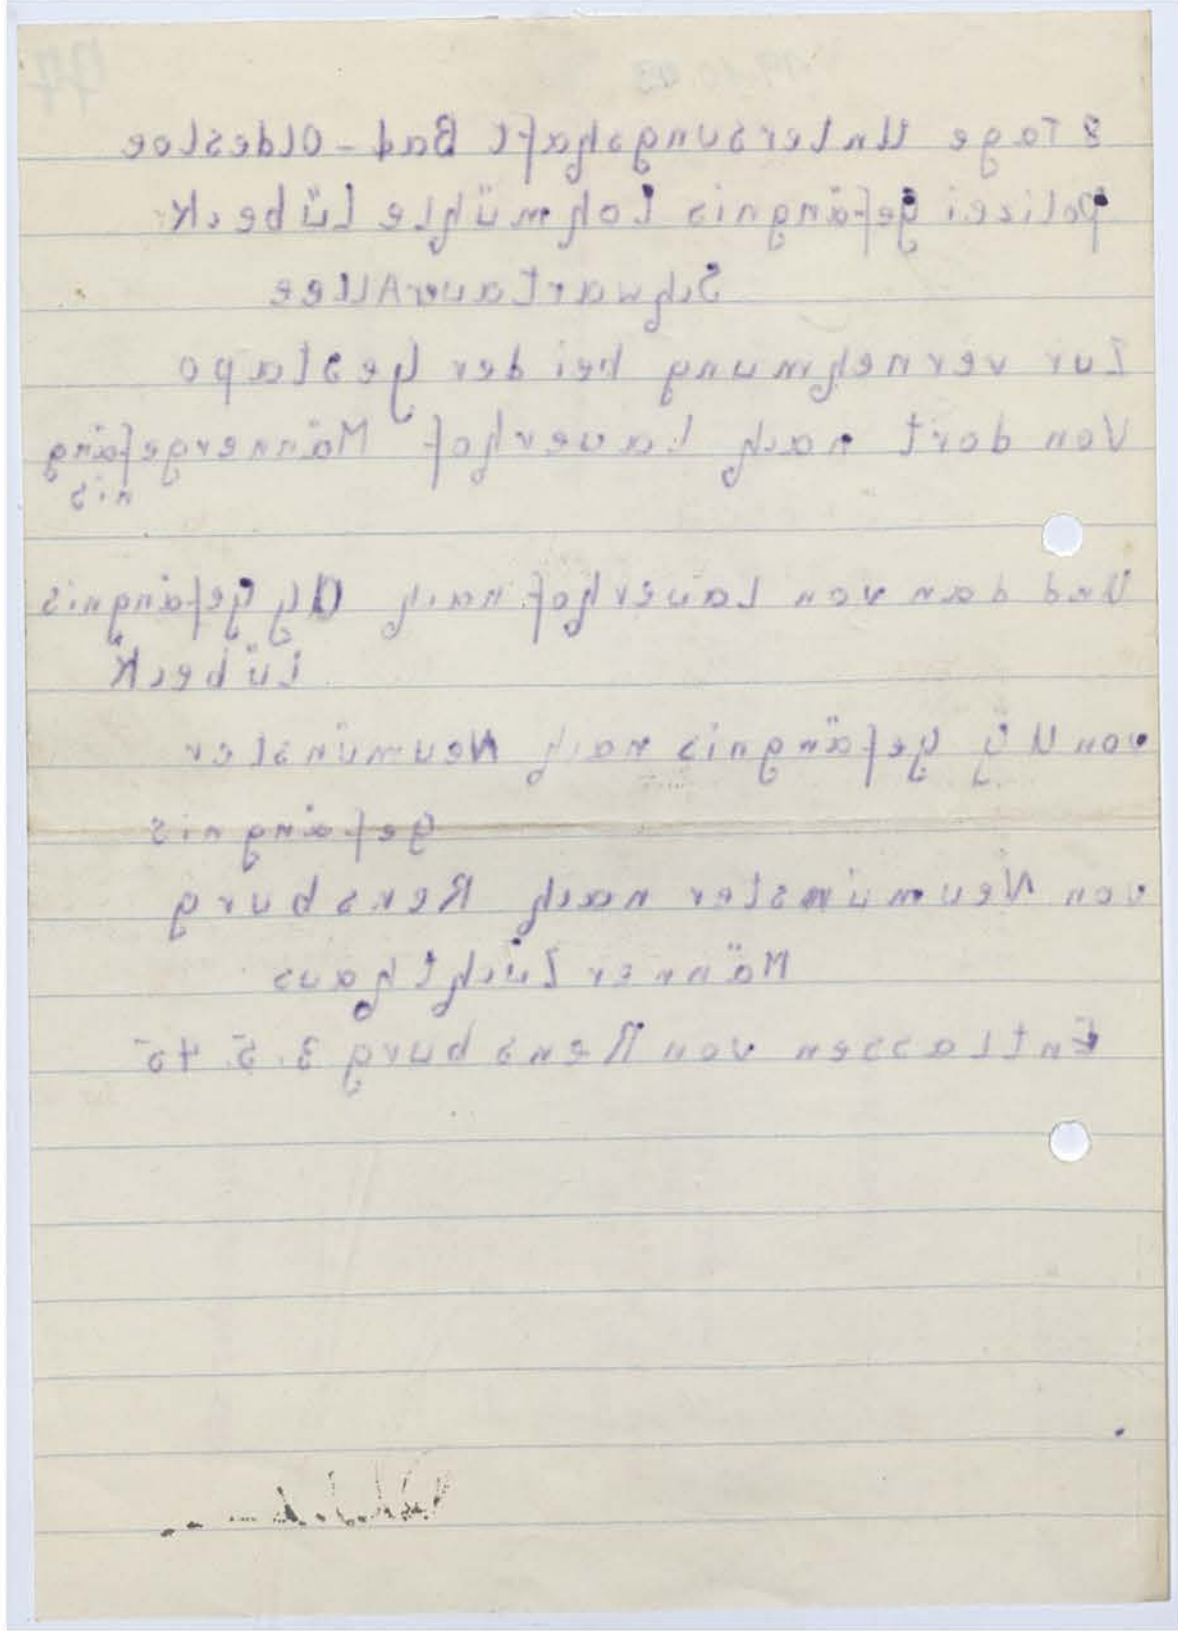 8 Tage Untersungshaft Bad-Oldesloe
Polizei gefängnis Lohmühle Lübeck
SchwartauerAllee
Zur vernehmung bei der gestapo
Von dort nach Lauerhof Männergefäng
nis
Und dan von Lauerhof nach Ug gefängnis
Lübeck
von Ug gefängnis nach Neumünster
gefängnis
von Neumünster nach Rensburg
Männer Züchthaus
Entlassen von Rensburg 3. 5. 45